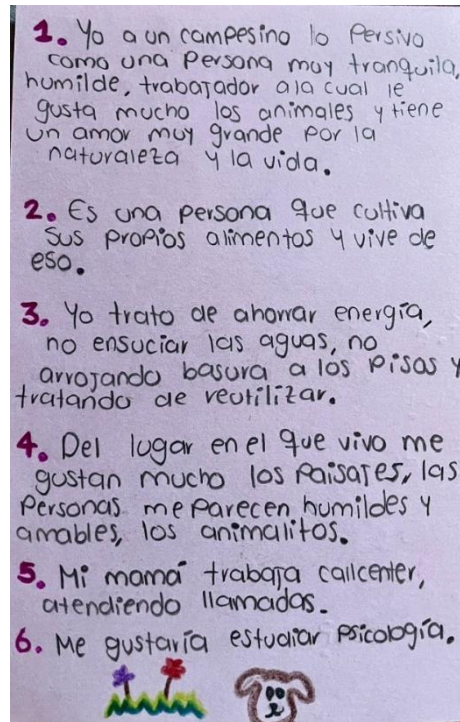 1. Yo a un campesino lo Persivo
como una Persona muy tranquila,
humilde, trabajador a la cual le
gusta mucho los animales y tiene
un amor muy grande por la
naturaleza y la vida.
2. Es una persona que cultiva
sus propios alimentos y vive de
eso.
3. Yo trato de ahorrar energía,
no ensuciar las aguas, no
arrojando basura a los pisos y
tratando de reutilizar.
4. Del lugar en el que vivo me
gustan mucho los paisajes, las
Personas me parecen humildes y
amables, los animalitos.
5. Mi mamá trabaja callcenter,
atendiendo llamadas.
6. Me gustaría estudiar psicología.